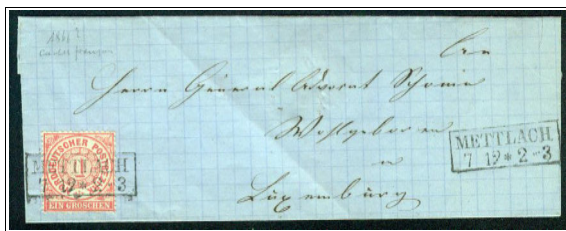 An
Herrn General Advocat
Wohlgeboren
in
Luxemburg
METTLACH
7 12 * 2-3
NORDDEUTSCHER POSTBEZIRK
1
EIN GROSCHEN
7 12 * 2-3